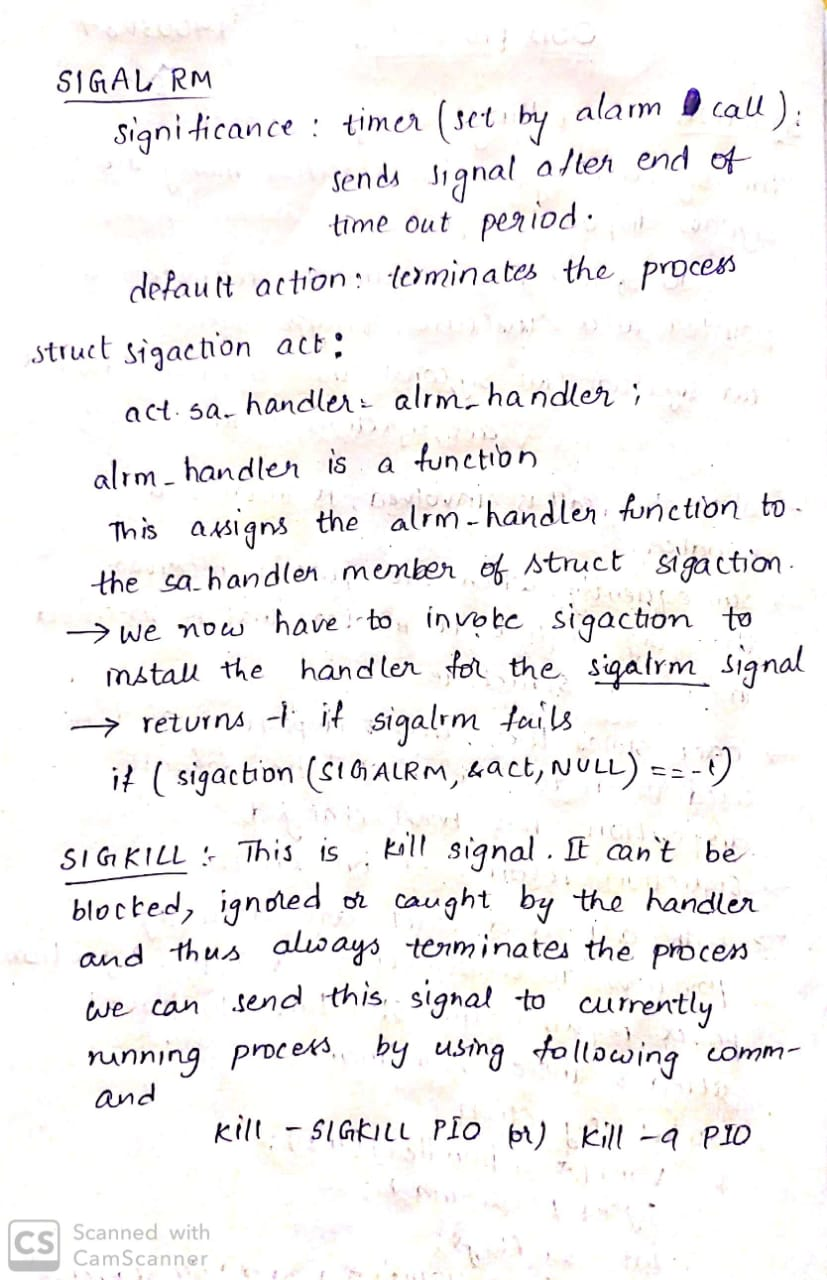 SIGALRM
significance : timer (set by alarm call).
sends signal after end of
time out period.
default action : terminates the process
struct sigaction act :
act. sa_handler = alrm_handler ;
alrm_handler is a function
This assigns the alrm_handler function to
the sa_handler member of struct sigaction.
→ we now have to invoke sigaction to
install the handler for the sigalrm signal
→ returns -1 if sigalrm fails
if ( sigaction (SIGALRM, &act, NULL) == -1)
SIGKILL :- This is kill signal. It can't be
blocked, ignored or caught by the handler
and thus always terminates the process
we can send this signal to currently
running process. by using following comm-
and
kill - SIGKILL PID (or) kill -9 PID
CS Scanned with
CamScanner